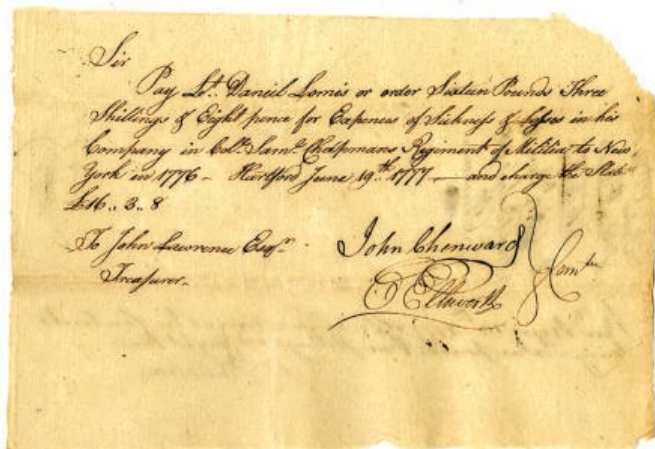 Sir
Pay Lt. Daniel Lomis or order Sixteen Pounds Three
Shillings & Eight pence for Expences of Sickness & Losses in his
Company in Colo. Saml. Chapmans Regiment of Militia to New
York in 1776 - Hartford June 19th. 1777 — and charge the State
£16.. 3.. 8
To John Lawrence Esqr.
Treasurer.
John Chenward
E Ellsworth
Comtee